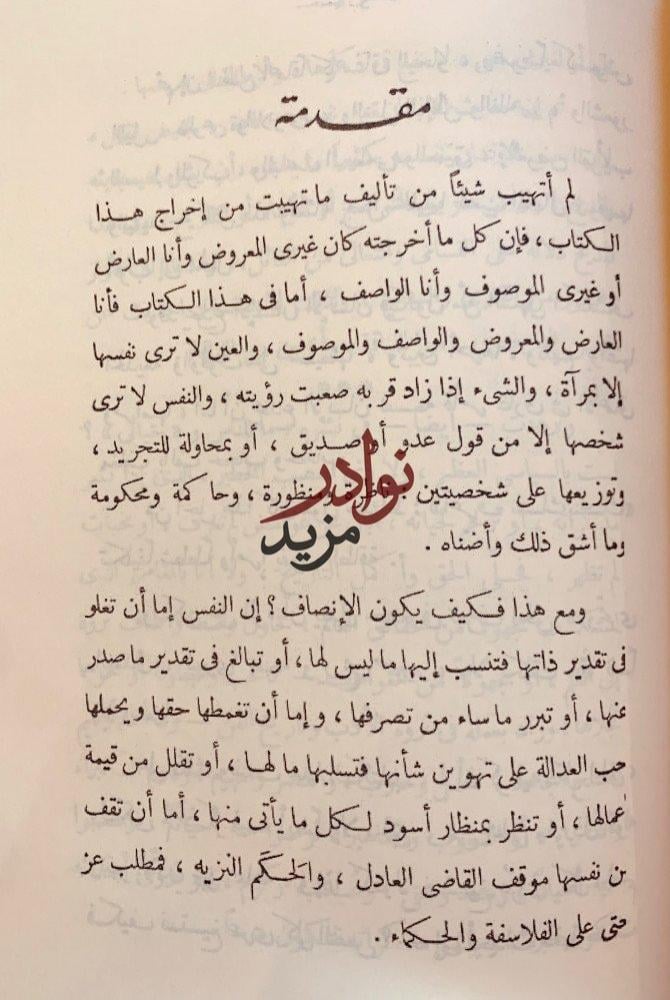 مقدمة
لم أتهيب شيئاً من تأليف ما تهيبت من إخراج هذا
الكتاب ، فإن كل ما أخرجته كان غيرى المعروض وأنا العارض
أو غيرى الموصوف وأنا الواصف ، أما فى هذا الكتاب فأنا
العارض والمعروض والواصف والموصوف ، والعين لا ترى نفسها
إلا بمرآة ، والشىء إذا زاد قربه صعبت رؤيته ، والنفس لا ترى
شخصها إلا من قول عدو أو صديق ، أو بمحاولة للتجريد ،
وتوزيعها على شخصيتين : ناظرة ومنظورة ، وحاكمة ومحكومة
وما أشق ذلك وأضناه .
نوادر
مزيد
ومع هذا فكيف يكون الإنصاف ؟ إن النفس إما أن تغلو
فى تقدير ذاتها فتنسب إليها ما ليس لها ، أو تبالغ فى تقدير ما صدر
عنها ، أو تبرر ما ساء من تصرفها ، وإما أن تغمطها حقها ويحملها
حب العدالة على تهوين شأنها فتسلبها ما لها ، أو تقلل من قيمة
أعمالها ، أو تنظر بمنظار أسود لكل ما يأتى منها ، أما أن تقف
من نفسها موقف القاضى العادل ، والحَكَم النزيه ، فمطلب عز
حتى على الفلاسفة والحكماء .